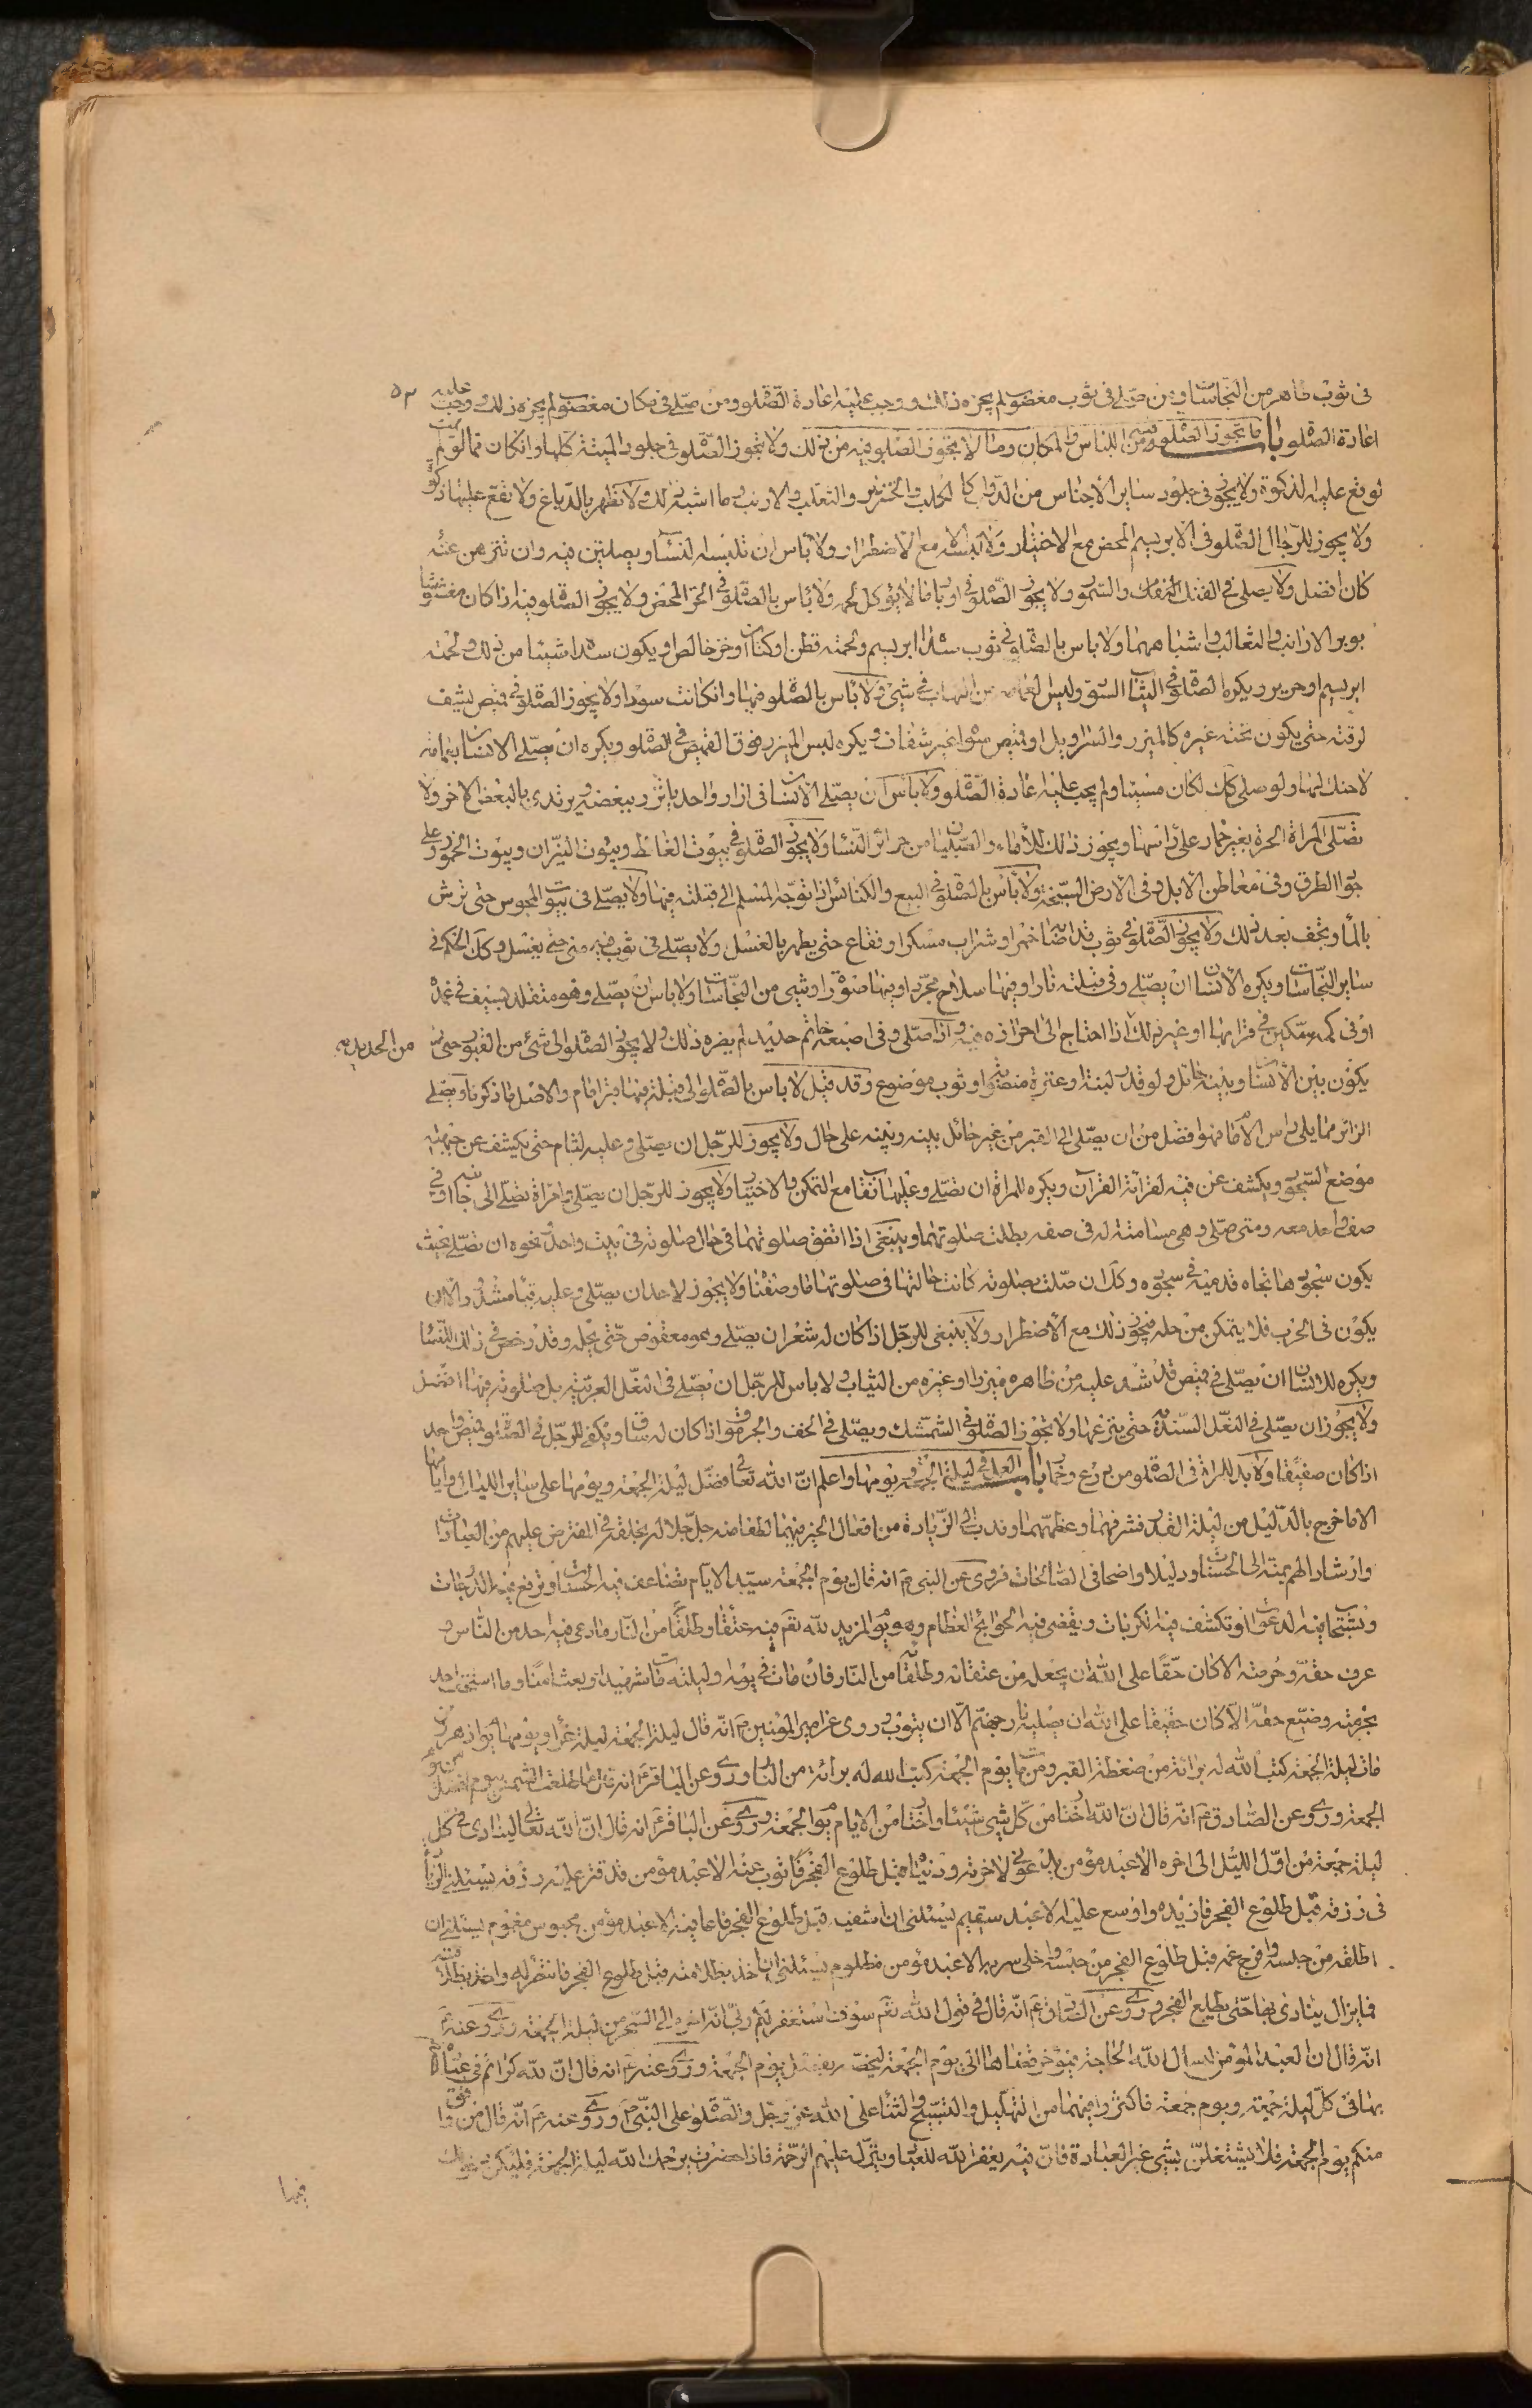 في ثوب طاهر من النجاسات ومن صلى في ثوب مغصوب لم يجزه ذلك ووجب عليه اعادة الصلوة ومن صلى في مكان مغصوب لم يجزه ذلك ووجب عليه ٥٣
اعادة الصلوة باب ما تجوز الصلوة فيه من اللباس والمكان وما لا يجوز الصلوة فيه من ذلك ولا تجوز الصلوة في جلود الميتة كلها وان كان مما لو لم تمت
لوقع عليه الذكوة ولا يجوز في جلود ساير الأجناس من الدواب كالكلب والخنزير والثعلب والارنب وما اشبه ذلك ولا تطهر بالدباغ ولا تقع عليها ذكوة
ولا يجوز للرجال الصلوة في الابريسم المحض مع الاختيار ولا لبسه الا مع الاضطرار ولا بأس ان تلبسه النساء ويصلين فيه وان تنزهن عنه
كان افضل ولا يصلى في الفنك والسمور ولا يجوز الصلوة في اوبار ما لا يؤكل لحمه ولا بأس بالصلوة في الخز المحض ولا يجوز الصلوة فيه اذا كان مغشوشا
بوبر الارانب والثعالب واشباههما ولا باس بالصلوة في ثوب سداه ابريسم ولحمته قطن او كتان او خز خالص او يكون سداه شيئا من ذلك ولحمته
ابريسم او حرير ويكره الصلوة في الثياب السود وليس العمامة من الثياب في شيء ولا بأس بالصلوة فيها وان كانت سوداء ولا يجوز الصلوة في قميص يشف
لرقته حتى يكون تحته غيره كالميزر والسراويل او قميص سواه غير شفاف ويكره لبس الميزر فوق القميص في الصلوة ويكره ان يصلي الانسان بعمامة
لا حنك لها ولو صلى كك لكان مسيئا ولم يجب عليه اعادة الصلوة ولا بأس ان يصلي الانسان في ازار واحد يأتزر ببعضه ويرتدي بالبعض الاخر ولا
تصلي المراة الحرة بغير خمار على راسها ويجوز ذلك للأماء والصبيان من حرائر النساء ولا يجوز الصلوة في بيوت الغائط وبيوت النيران وبيوت الخمور وعلى
جواد الطرق وفي معاطن الابل وفي الارض السبخة ولا بأس بالصلوة في البيع والكنائس اذا توجه المسلم الى قبلته فيها ولا يصلي في بيوت المجوس حتى ترش
بالماء وتجف بعد ذلك ولا يجوز الصلوة في ثوب قد اصابه خمر او شراب مسكر او فقاع حتى يطهر بالغسل ولا يصلي في ثوب فيه مني حتى يغسل وكك الحكم في
ساير النجاسات ويكره للأنسان ان يصلي وفي قبلته نار او فيها سلاح مجرد او فيها صورة او شيء من النجاسات ولا باس ان يصلي وهو متقلد بسيف في غمده
او في كمه سكين في قرابها او غير ذلك اذا احتاج الى احرازه فيه واذا صلى وفي اصبعه خاتم حديد لم يضره ذلك ولا يجوز الصلوة الى شيء من القبور حتى من الحديد
يكون بين الانسان وبينه حائل ولو قدر لبنة او عنزة منصوبة او ثوب موضوع وقد قيل لا باس بالصلوة الى قبلة فيها قبر امام والاصل ما ذكرناه ويصلي
الزائر مما يلي راس الامام فهو افضل من ان يصلي الى القبر من غير حائل بينه وبينه على حال ولا يجوز للرجل ان يصلي وعليه لثام حتى يكشف عن جبهته
موضع السجود ويكشف عن فيه لقرائة القرآن ويكره للمراة ان تصلي وعليها نقاب مع التمكن والاختيار ولا يجوز للرجل ان يصلي وامراة تصلي الى جانبه او في
صف واحد معه ومتى صلى وهي مسامتة له في صفه بطلت صلوتهما وينبغي اذا اتفق صلوتهما في حال صلوته في بيت واحد ونحوه ان تصلي بحيث
يكون سجودها تجاه قدميه في سجوده وكك ان صلت بصلوته كانت حالتها في صلوتها ما وصفنا ولا يجوز لاحد ان يصلي وعليه قباء مشدود الا ان
يكون في الحرب فلا يتمكن من حله فيجوز ذلك مع الأضطرار ولا ينبغي للرجل اذا كان له شعر ان يصلي وهو معقوص حتى يحله وقد رخص في ذلك للنساء
ويكره للانسان ان يصلي في قميص قد شد عليه من ظاهره ميزرا او غيره من الثياب ولا باس للرجل ان يصلي في النعل العربية بل صلوته فيها افضل
ولا يجوز ان يصلي في النعل السندية حتى ينزعها ولا تجوز الصلوة في الشمشك ويصلي في الخف والجرموق اذا كان له ساق ويكفي للرجل في الصلوة قميص واحد
اذا كان صفيقا ولا بد للمراة في الصلوة من درع وخمار باب العمل في ليلة الجمعة ويومها واعلم ان الله تعالى فضل ليلة الجمعة ويومها على ساير الليالي وايامها
الا ما خرج بالدليل من ليلة القدر فشرفهما وعظمهما وندب الى الزيادة من افعال الخير فيهما لطفا منه جل جلاله لخلقه في المفترض عليهم من العبادات
وارشادا لهم منه الى الحسنات ودليلا واضحا في الصالحات فروي عن النبي ص انه قال يوم الجمعة سيد الايام تضاعف فيه الحسنات وترفع فيه الدرجات
وتستجاب فيه الدعوات وتكشف فيه الكربات ويقضى فيه الحوائج العظام وهو يوم المزيد لله تعالى فيه عتقاء وطلقاء من النار ما دعى فيه احد من الناس و
عرف حقه وحرمته الا كان حقا على الله ان يجعله من عتقائه وطلقائه من النار فان مات في يومه وليلته مات شهيدا وبعث امنا وما استخف احد
بحرمته وضيع حقه الا كان حقيقا على الله ان يصليه نار جهنم الا ان يتوب وروي عن امير المؤمنين ع انه قال ليلة الجمعة ليلة غراء ويومها يوم ازهر من
مات ليلة الجمعة كتب الله له برائة من ضغطة القبر ومن مات يوم الجمعة كتب الله له برائة من النار وروي عن الباقر ع انه قال ما طلعت الشمس بيوم افضل من يوم
الجمعة وروي عن الصادق ع انه قال ان الله اختار من كل شيء شيئا واختار من الايام يوم الجمعة وروي عن الباقر ع انه قال ان الله تعالى لينادي في كل
ليلة جمعة من اول الليل الى اخره الا عبد مؤمن يدعوني لاخرته ودنياه قبل طلوع الفجر فاتوب عنه الا عبد مؤمن قد قترت عليه رزقه يسئلني الزيادة
في رزقه قبل طلوع الفجر فازيده واوسع عليه الا عبد سقيم يسئلني ان اشفيه قبل طلوع الفجر فاعافيه الا عبد مؤمن محبوس مغموم يسئلني ان
اطلقه من حبسه وافرج غمه قبل طلوع الفجر من حبسه واخلى سربه الا عبد مؤمن مظلوم يسئلني ان اخذ بظلامته قبل طلوع الفجر فانتصر له واخذ بظلامته
فما يزال ينادي بهذا حتى يطلع الفجر وروي عن الصادق ع انه قال في قول الله تعالى سوف استغفر لكم ربي انه اخره الى السحر من ليلة الجمعة وروي عنه ع
انه قال ان العبد المؤمن ليسال الله الحاجة فيؤخر قضاها الى يوم الجمعة ليخصه بفضل يوم الجمعة وروي عنه ع انه قال ان لله كرائم في عباده خصهم
بها في كل ليلة جمعة ويوم جمعة فاكثروا فيهما من التهليل والتسبيح والثناء على الله عز وجل والصلوة على النبي ص وروي عنه ع انه قال من وافق
منكم يوم الجمعة فلا يشتغلن بشيء غير العبادة فان فيه يغفر الله للعباد وينزل عليهم الرحمة فاذا حضرت يرحمك الله ليلة الجمعة فليكن
فيها